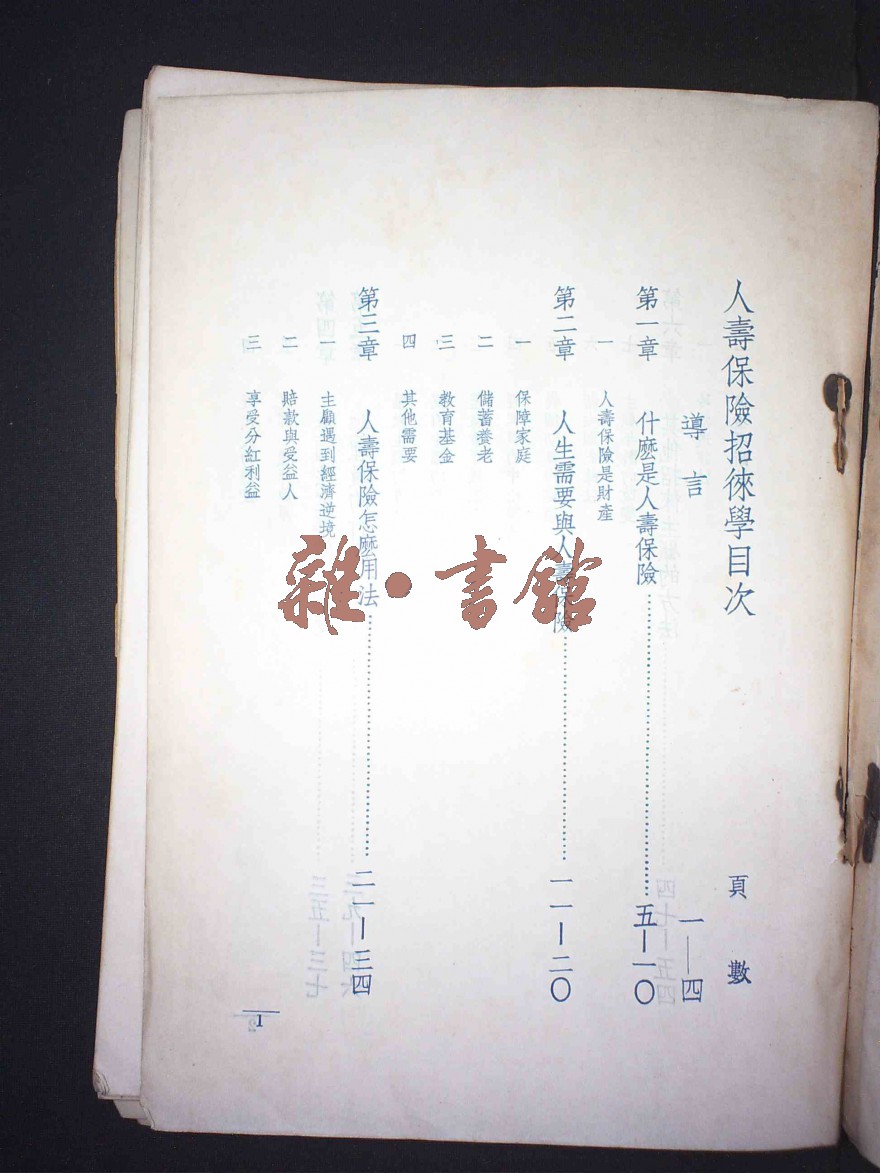 人壽保險招徠學目次
頁數
導言 一—四
第一章 什麽是人壽保險……五—一〇
一 人壽保險是財產
第二章 人生需要與人壽保險……一一—二〇
一 保障家庭
二 儲蓄養老
三 教育基金
四 其他需要
第三章 人壽保險怎麽用法……二一—三四
一 主顧遇到經濟逆境
二 賠款與受益人
三 享受分紅利益
1
雜·書館